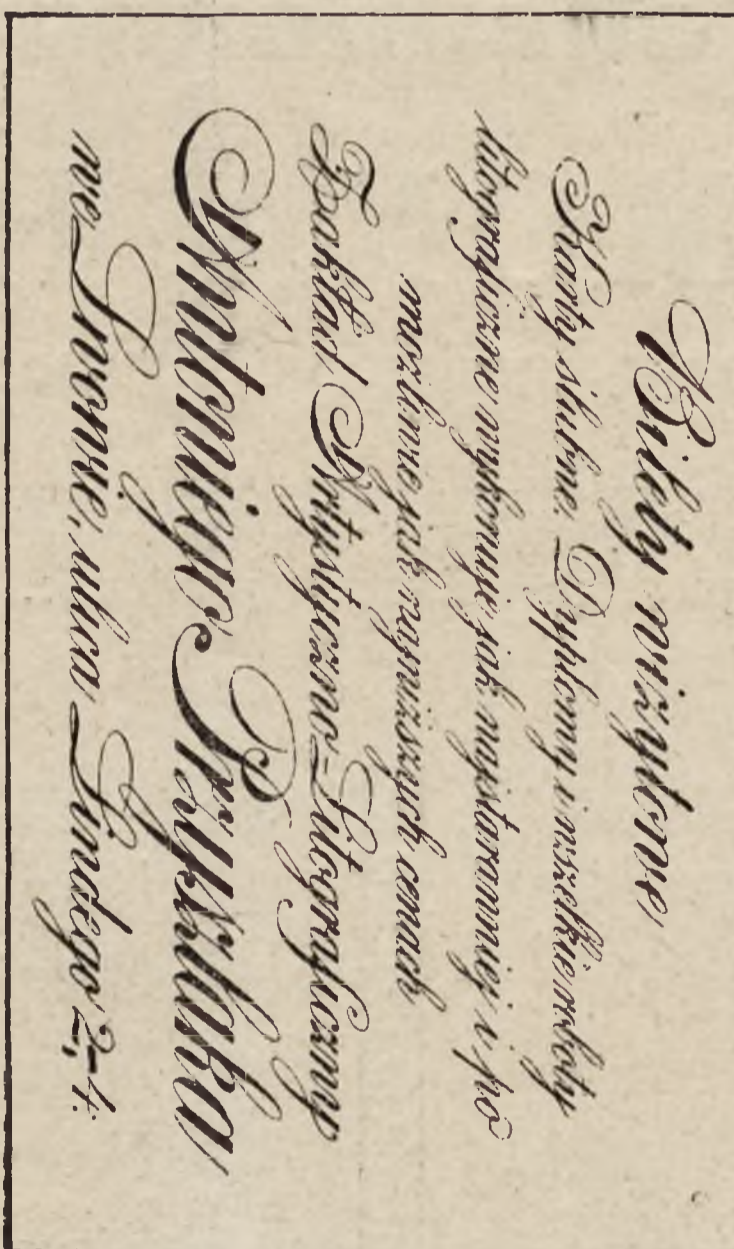 Bilety wizytowe,
Karty ślubne, Dyplomy i wszelkie roboty
litograficzne wykonuje jak najstaranniej i po
możliwie jak najniższych cenach
Zakład Artystyczno-Litograficzny
Antoniego Przyszlaka
we Lwowie, ulica Lindego 2-4.